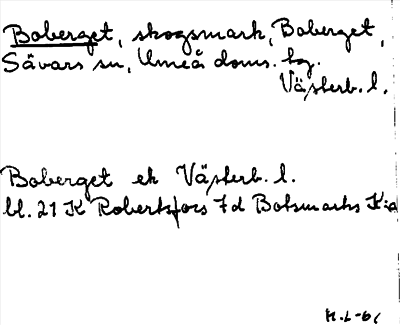 Boberget, skogsmark, Boberget,
Sävars sn, Umeå doms. hg.
Västerb. l.
Boberget ek Västerb. l.
bl. 21 K Robertsfors 7d Botsmarks K:a